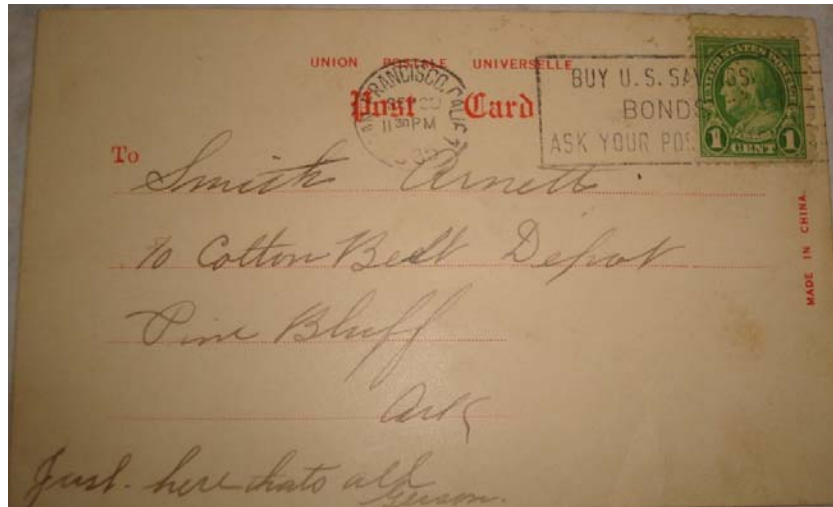 UNION POSTALE UNIVERSELLE
Post Card
SAN FRANCISCO, CALIF
11 30 PM
BUY U.S. SAVINGS
BONDS
ASK YOUR POS
UNITED STATES POSTAGE
1 CENT 1
MADE IN CHINA.
To
Smith Arnett.
℅ Cotton Belt Depot
Pine Bluff
Ark
Just here thats all